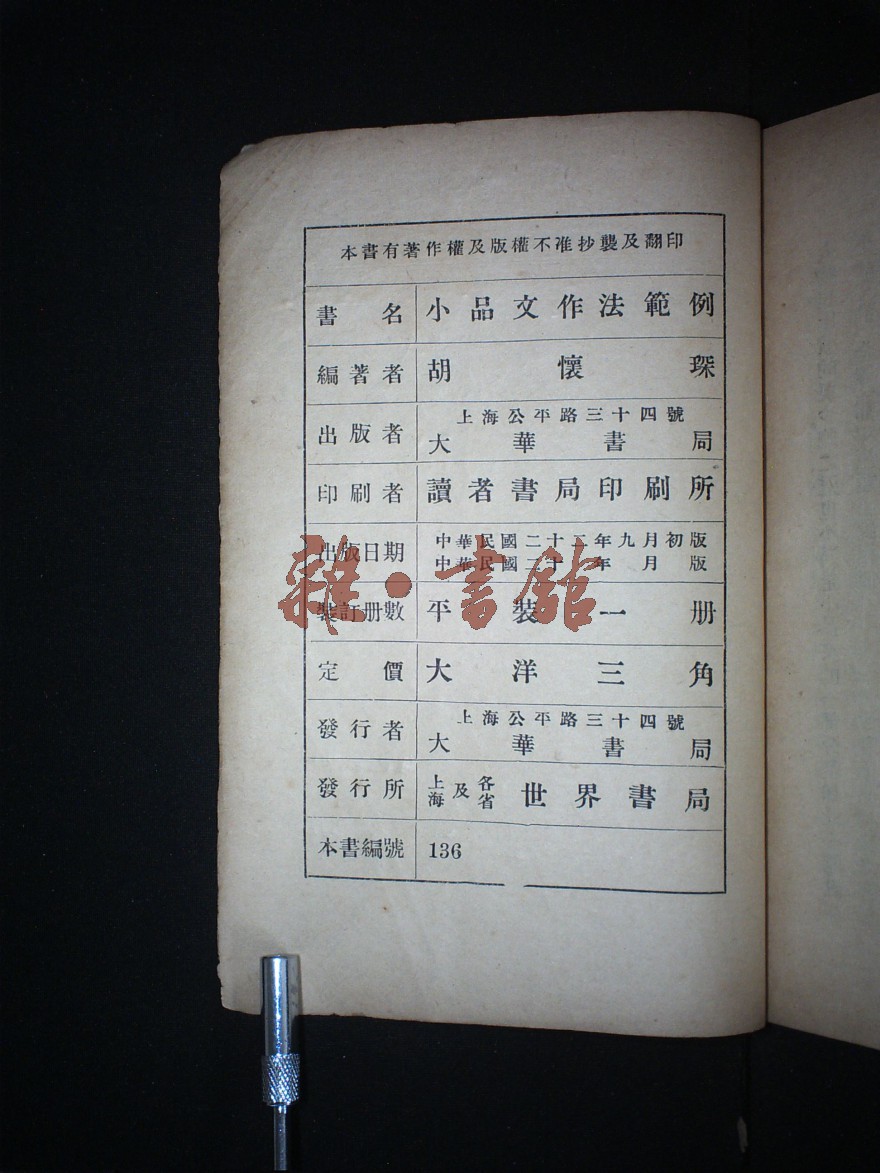 本書有著作權及版權不准抄襲及翻印
書名 小品文作法範例
編著者 胡懷琛
出版者 上海公平路三十四號
大華書局
印刷者 讀者書局印刷所
出版日期 中華民國二十二年九月初版
中華民國二十 年 月 版
裝訂册數 平裝一册
定價 大洋三角
發行者 上海公平路三十四號
大華書局
發行所 上海及各省 世界書局
本書編號 136
雜·書館